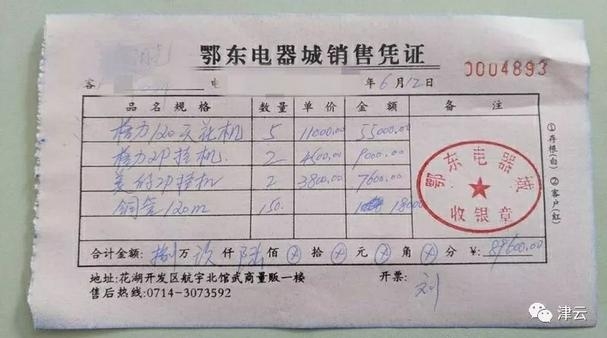 鄂东电器城销售凭证
0004893
客
电
年6月12日
品名规格 数量 单价 金额 备注
格力120天花机 5 11000.00 55000.00
格力2P挂机 2 4600.00 9000.00
美的2P挂机 2 3800.00 7600.00
铜管120m 150. 18000
鄂东电器城
收银章
①存根(白) ②客户(红)
合计金额: 捌万玖仟陆佰⊗拾⊗元⊗角⊗分 ¥: 89600.00
地址:花湖开发区航宇北馆武商量贩一楼 开票: 刘
售后热线:0714-3073592
津云